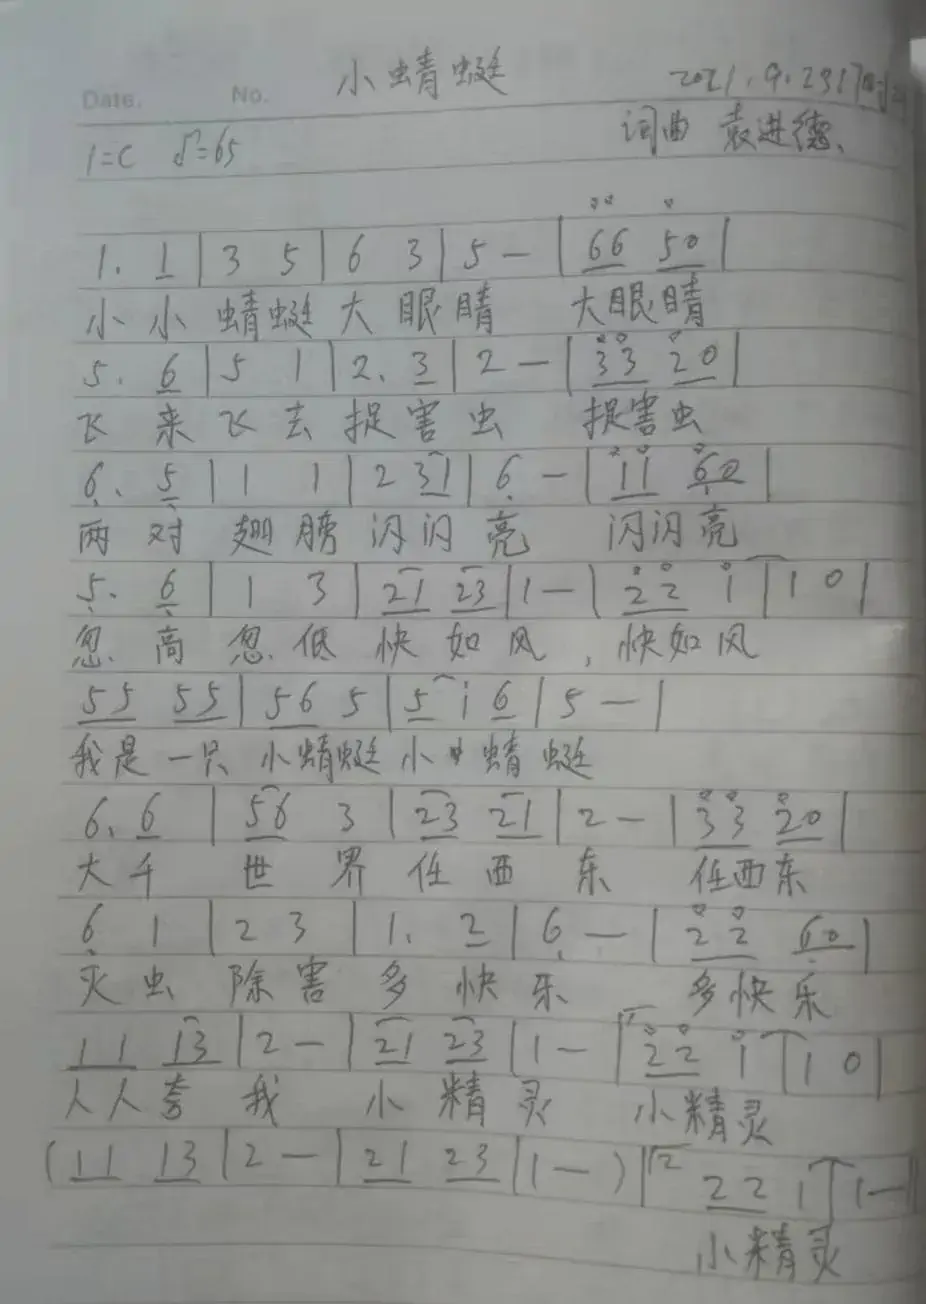 小蜻蜓
Date. No. 2021.9.23 17时
1=C ♩=65 词曲 袁进德、
1. 1 | 3 5 | 6 3 | 5 — | 66 50 |
小小蜻蜓大眼睛 大眼睛
5. 6 | 5 1 | 2. 3 | 2 — | 33 20 |
飞来飞去捉害虫 捉害虫
6. 5 | 1 1 | 2 31 | 6 — | 11 60 |
两对翅膀闪闪亮 闪闪亮
5. 6 | 1 3 | 21 23 | 1 — | 22 1 | 1 0 |
忽高忽低快如风,快如风
55 55 | 56 5 | 5 i 6 | 5 — |
我是一只小蜻蜓小蜻蜓
6. 6 | 56 3 | 23 21 | 2 — | 33 20 |
大千世界任西东 任西东
6 1 | 2 3 | 1. 2 | 6 — | 22 60 |
灭虫除害多快乐 多快乐
11 13 | 2 — | 21 23 | 1 — | 1 22 1 | 1 0 |
人人夸我小精灵 小精灵
( 11 13 | 2 — | 21 23 | 1 — ) | 2 22 1 | 1 — ‖
小精灵